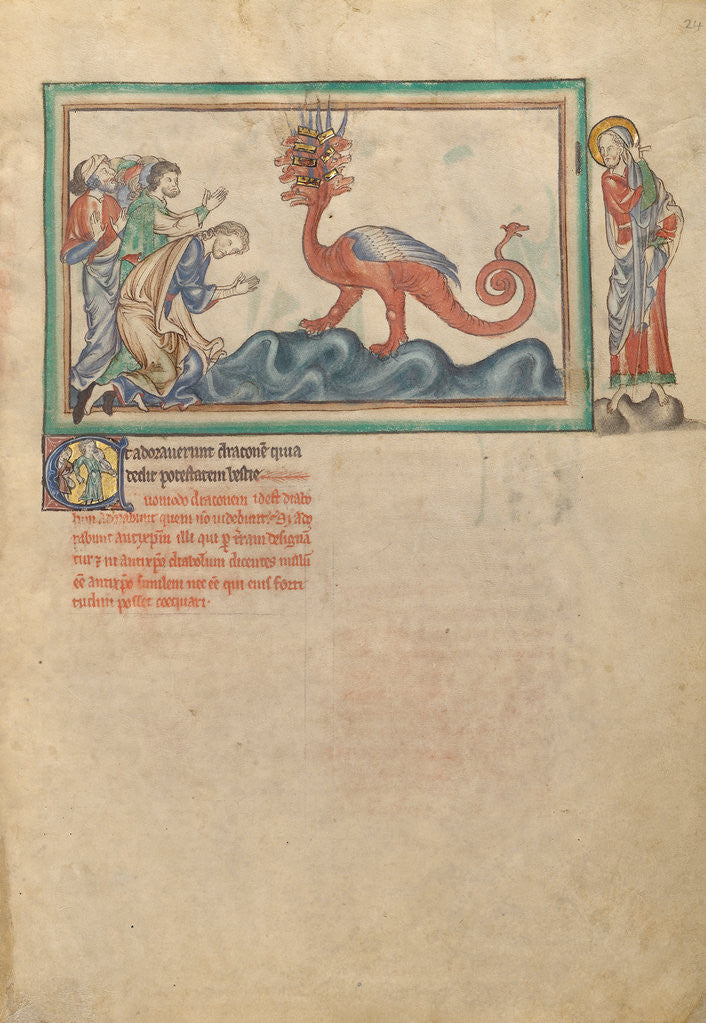 24
Et adorauerunt draconē quia
dedit potestatem bestie
uomodo draconem id est diabo
lum adorabunt quem nō uidebunt. Sꝫ ado
rabunt antixp̄m illi qui ꝑ t̄ram designā
tur ⁊ in antixp̄o diabolum dicentes nullū
eē antixp̄o similem nec eē qui eius forti
tudini posset coequari.